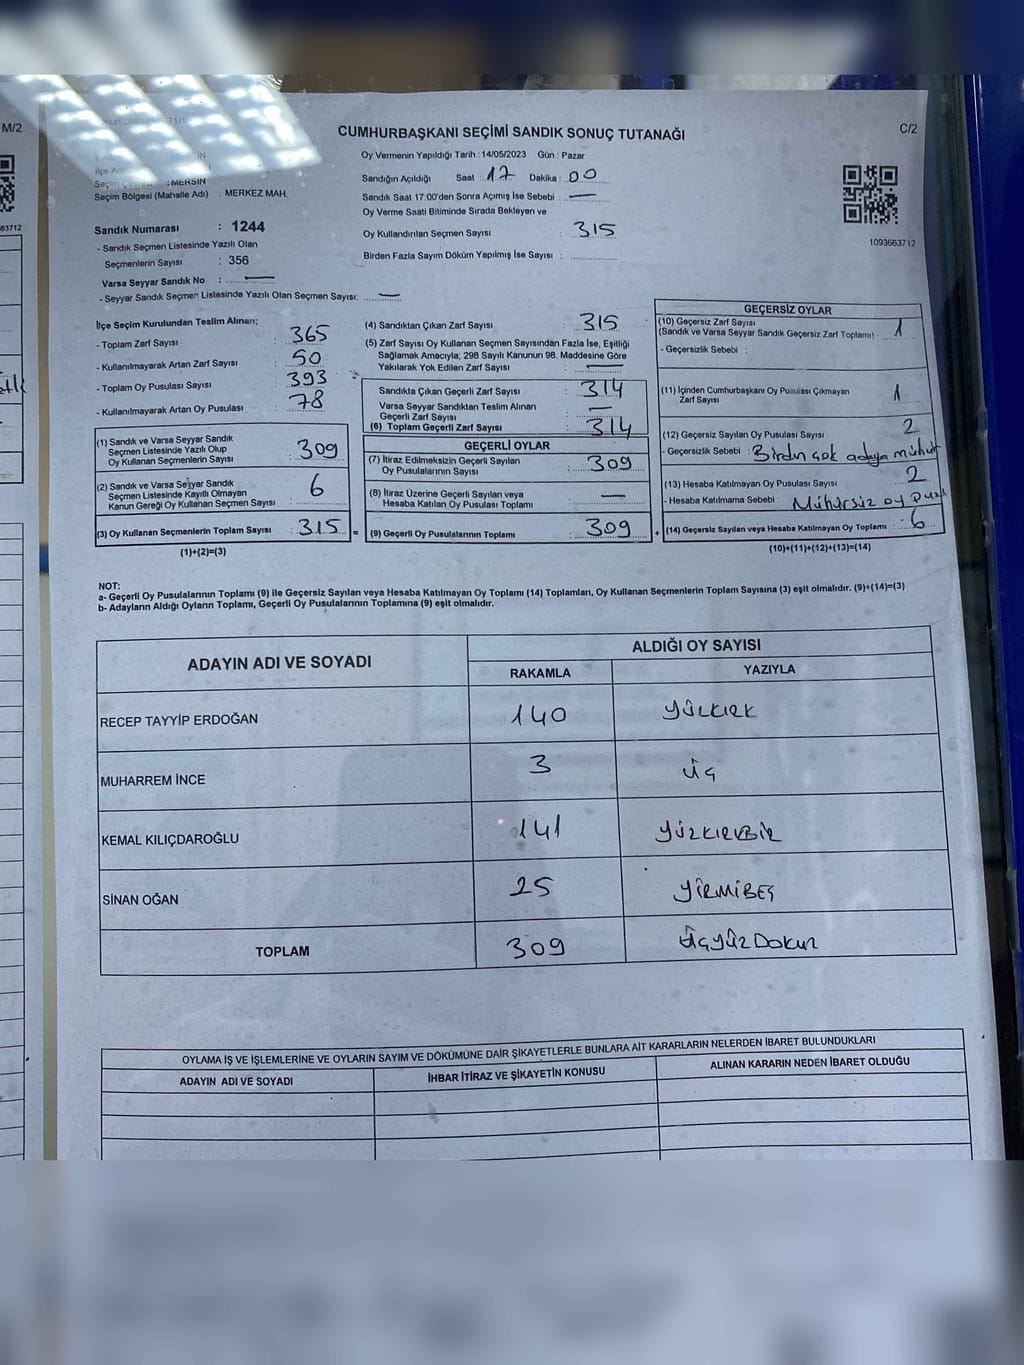 M/2
C/2
CUMHURBAŞKANI SEÇİMİ SANDIK SONUÇ TUTANAĞI
Oy Vermenin Yapıldığı Tarih : 14/05/2023 Gün : Pazar
Sandığın Açıldığı Saat : 17 Dakika : 00
Sandık Saat 17.00'den Sonra Açımış İse Sebebi : —
Oy Verme Saati Bitiminde Sırada Bekleyen ve
Oy Kullandırılan Seçmen Sayısı : 315
Birden Fazla Sayım Döküm Yapılmış İse Sayısı :
1093663712
63712
: MERSİN
Seçim Bölgesi (Mahalle Adı) : MERKEZ MAH.
Sandık Numarası : 1244
- Sandık Seçmen Listesinde Yazılı Olan
Seçmenlerin Sayısı : 356
Varsa Seyyar Sandık No : —
- Seyyar Sandık Seçmen Listesinde Yazılı Olan Seçmen Sayısı: —
İlçe Seçim Kurulundan Teslim Alınan;
- Toplam Zarf Sayısı : 365
- Kullanılmayarak Artan Zarf Sayısı : 50
- Toplam Oy Pusulası Sayısı : 393
- Kullanılmayarak Artan Oy Pusulası : 78
(1) Sandık ve Varsa Seyyar Sandık
Seçmen Listesinde Yazılı Olup
Oy Kullanan Seçmenlerin Sayısı : 309
(2) Sandık ve Varsa Seyyar Sandık
Seçmen Listesinde Kayıtlı Olmayan
Kanun Gereği Oy Kullanan Seçmen Sayısı : 6
(3) Oy Kullanan Seçmenlerin Toplam Sayısı : 315 =
(1)+(2)=(3)
(4) Sandıktan Çıkan Zarf Sayısı : 315
(5) Zarf Sayısı Oy Kullanan Seçmen Sayısından Fazla İse, Eşitliği
Sağlamak Amacıyla; 298 Sayılı Kanunun 98. Maddesine Göre
Yakılarak Yok Edilen Zarf Sayısı : —
Sandıkta Çıkan Geçerli Zarf Sayısı : 314
Varsa Seyyar Sandıktan Teslim Alınan
Geçerli Zarf Sayısı : —
(6) Toplam Geçerli Zarf Sayısı : 314
GEÇERLİ OYLAR
(7) İtiraz Edilmeksizin Geçerli Sayılan
Oy Pusulalarının Sayısı : 309
(8) İtiraz Üzerine Geçerli Sayılan veya
Hesaba Katılan Oy Pusulası Toplamı : —
(9) Geçerli Oy Pusulalarının Toplamı : 309 +
GEÇERSİZ OYLAR
(10) Geçersiz Zarf Sayısı : 1
(Sandık ve Varsa Seyyar Sandık Geçersiz Zarf Toplamı)
- Geçersizlik Sebebi :
(11) İçinden Cumhurbaşkanı Oy Pusulası Çıkmayan
Zarf Sayısı : 1
(12) Geçersiz Sayılan Oy Pusulası Sayısı : 2
- Geçersizlik Sebebi : Birden çok adaya mühür
(13) Hesaba Katılmayan Oy Pusulası Sayısı : 2
- Hesaba Katılmama Sebebi : Mühürsiz oy pusl
(14) Geçersiz Sayılan veya Hesaba Katılmayan Oy Toplamı : 6
(10)+(11)+(12)+(13)=(14)
NOT:
a- Geçerli Oy Pusulalarının Toplamı (9) ile Geçersiz Sayılan veya Hesaba Katılmayan Oy Toplamı (14) Toplamları, Oy Kullanan Seçmenlerin Toplam Sayısına (3) eşit olmalıdır. (9)+(14)=(3)
b- Adayların Aldığı Oyların Toplamı, Geçerli Oy Pusulalarının Toplamına (9) eşit olmalıdır.
ADAYIN ADI VE SOYADI
ALDIĞI OY SAYISI
RAKAMLA YAZIYLA
RECEP TAYYİP ERDOĞAN 140 YÜZKIRK
MUHARREM İNCE 3 ÜÇ
KEMAL KILIÇDAROĞLU 141 YÜZKIRKBİR
SİNAN OĞAN 25 YİRMİBEŞ
TOPLAM 309 ÜçyüzDokuz
OYLAMA İŞ VE İŞLEMLERİNE VE OYLARIN SAYIM VE DÖKÜMÜNE DAİR ŞİKAYETLERLE BUNLARA AİT KARARLARIN NELERDEN İBARET BULUNDUKLARI
ADAYIN ADI VE SOYADI İHBAR İTİRAZ VE ŞİKAYETİN KONUSU ALINAN KARARIN NEDEN İBARET OLDUĞU